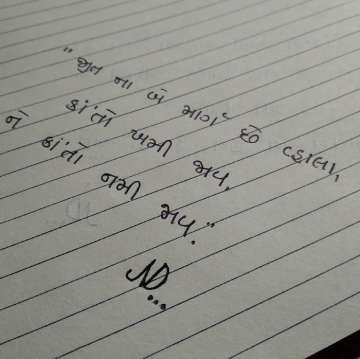 "જીત ના બે માર્ગ છે વ્હાલા,
કાં'તો ખમી જાવ,
ને કાં'તો નમી જાવ."
ND...